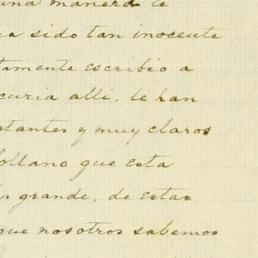 una manera te
a sido tan inocente
tamente escribio a
curia alli, le han
stantes y muy claros
ollano que esta
grande, de estas
que nosotros sabemos